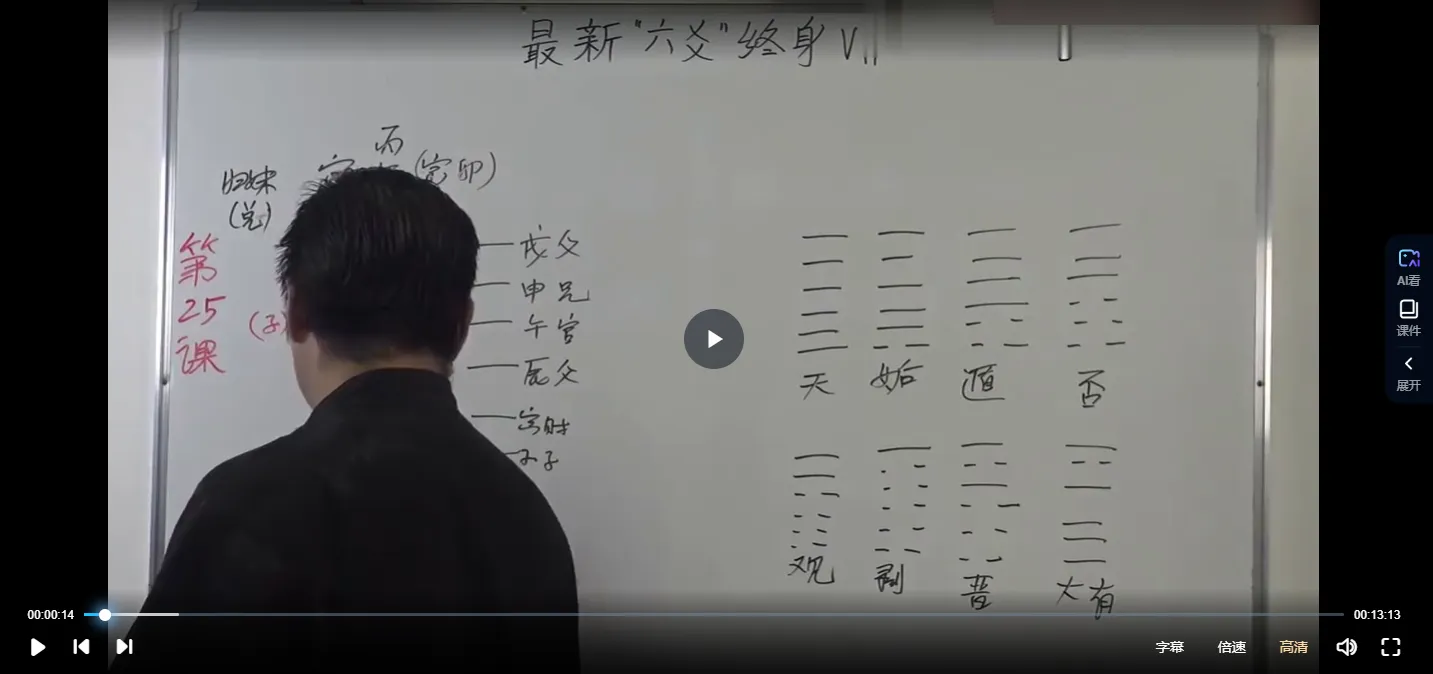 最新"六爻"终身V
丙
归妹
(兑)
第
25
课
戌父
申兄
午官
辰父
寅财
子
天
姤
遁
否
观
剥
晋
大有
AI看
课件
展开
00:00:14
00:13:13
字幕
倍速
高清